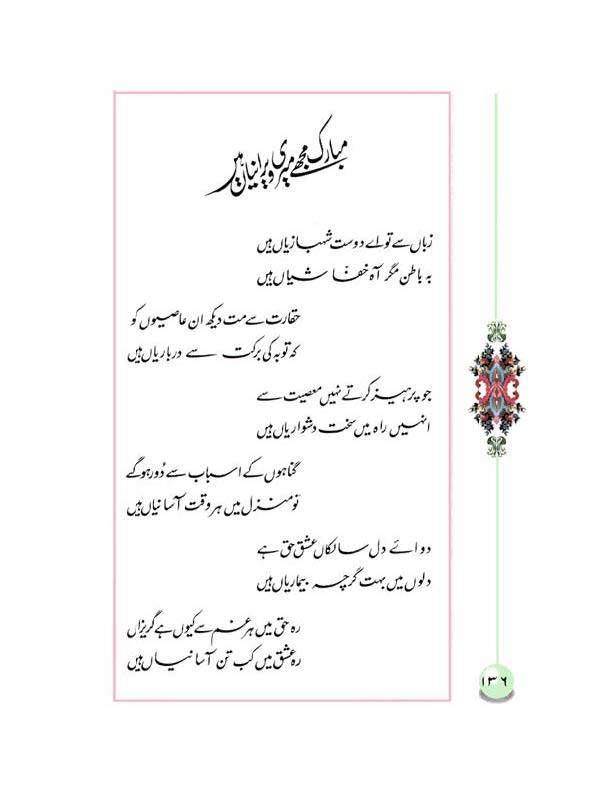 مبارک مجھے میری ویرانیاں ہیں
زباں سے تو اے دوست شہبازیاں ہیں
بہ باطن مگر آہ خفّاشیاں ہیں
حقارت سے مت دیکھ ان عاصیوں کو
کہ توبہ کی برکت سے درباریاں ہیں
جو پرہیز کرتے نہیں معصیت سے
انہیں راہ میں سخت دشواریاں ہیں
گناہوں کے اسباب سے دُور ہوگے
تو منزل میں ہر وقت آسانیاں ہیں
دوائے دل سالکاں عشق حق ہے
دلوں میں بہت گرچہ بیماریاں ہیں
رہ حق میں ہر غم سے کیوں ہے گریزاں
رہ عشق میں کب تن آسانیاں ہیں
۱۳۶